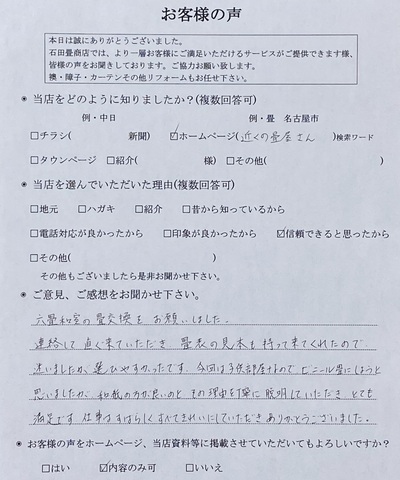 お客様の声
本日は誠にありがとうございました。
石田畳商店では、より一層お客様にご満足いただけるサービスがご提供できます様、
皆様の声をお聞きしております。ご協力お願い致します。
襖・障子・カーテンその他リフォームもお任せ下さい。
◉ 当店をどのように知りましたか?(複数回答可)
例・中日 例・畳 名古屋市
□チラシ( 新聞) ☑ホームページ(近くの畳屋さん )検索ワード
□タウンページ □紹介( 様) □その他( )
◉ 当店を選んでいただいた理由(複数回答可)
□地元 □ハガキ □紹介 □昔から知っているから
□電話対応が良かったから □印象が良かったから ☑信頼できると思ったから
□その他( )
その他もございましたら是非お聞かせ下さい。
◉ ご意見、ご感想をお聞かせ下さい。
六畳和室の畳交換をお願いしました。
連絡して直ぐ来ていただき 畳表の見本も持って来てくれたので
迷いましたが、選びやすかったです。今回は子供部屋なので ビニール畳にしようと
思いましたが、和紙の方が良いのと その理由を丁寧に説明していただき とても
満足です 仕事はすばらしくすべてきれいにしていただきありがとうございました。
◉ お客様の声をホームページ、当店資料等に掲載させていただいてもよろしいですか?
□はい ☑内容のみ可 □いいえ